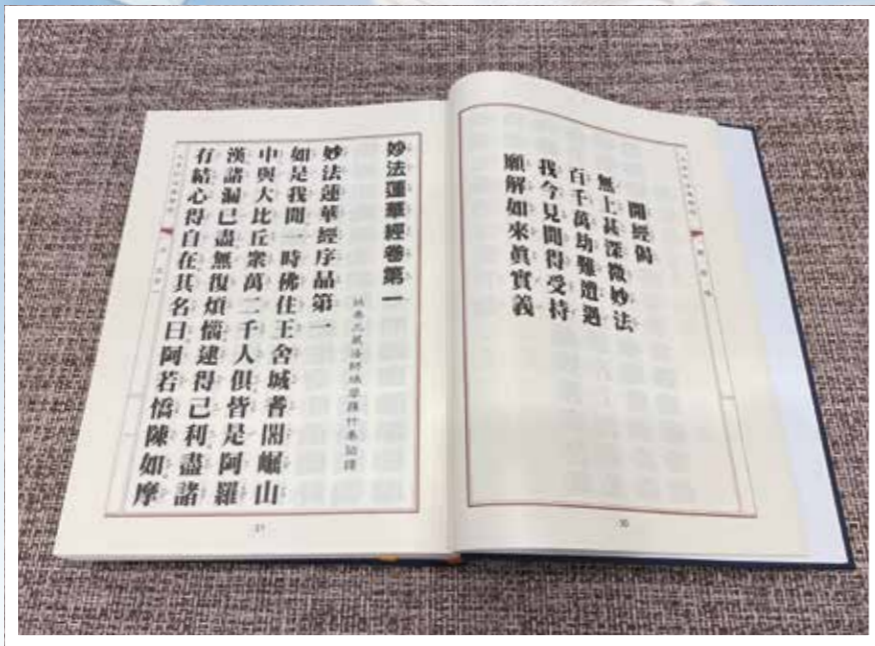 開經偈
無上甚深微妙法
百千萬劫難遭遇
我今見聞得受持
願解如來眞實義
妙法蓮華經卷第一
姚秦三藏法師鳩摩羅什奉詔譯
妙法蓮華經序品第一
如是我聞一時佛住王舍城耆闍崛山
中與大比丘眾萬二千人俱皆是阿羅
漢諸漏已盡無復煩惱逮得己利盡諸
有結心得自在其名曰阿若憍陳如摩